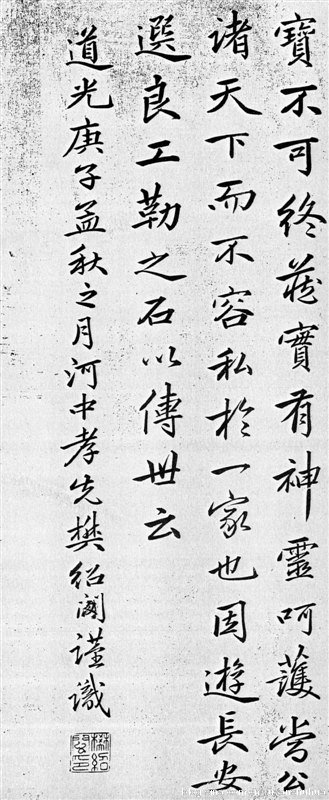 寶不可終藏實有神靈呵護嘗公
諸天下而不容私於一家也因遊長安
選良工勒之石以傳世云
道光庚子孟秋之月河中孝先樊紹閎謹識